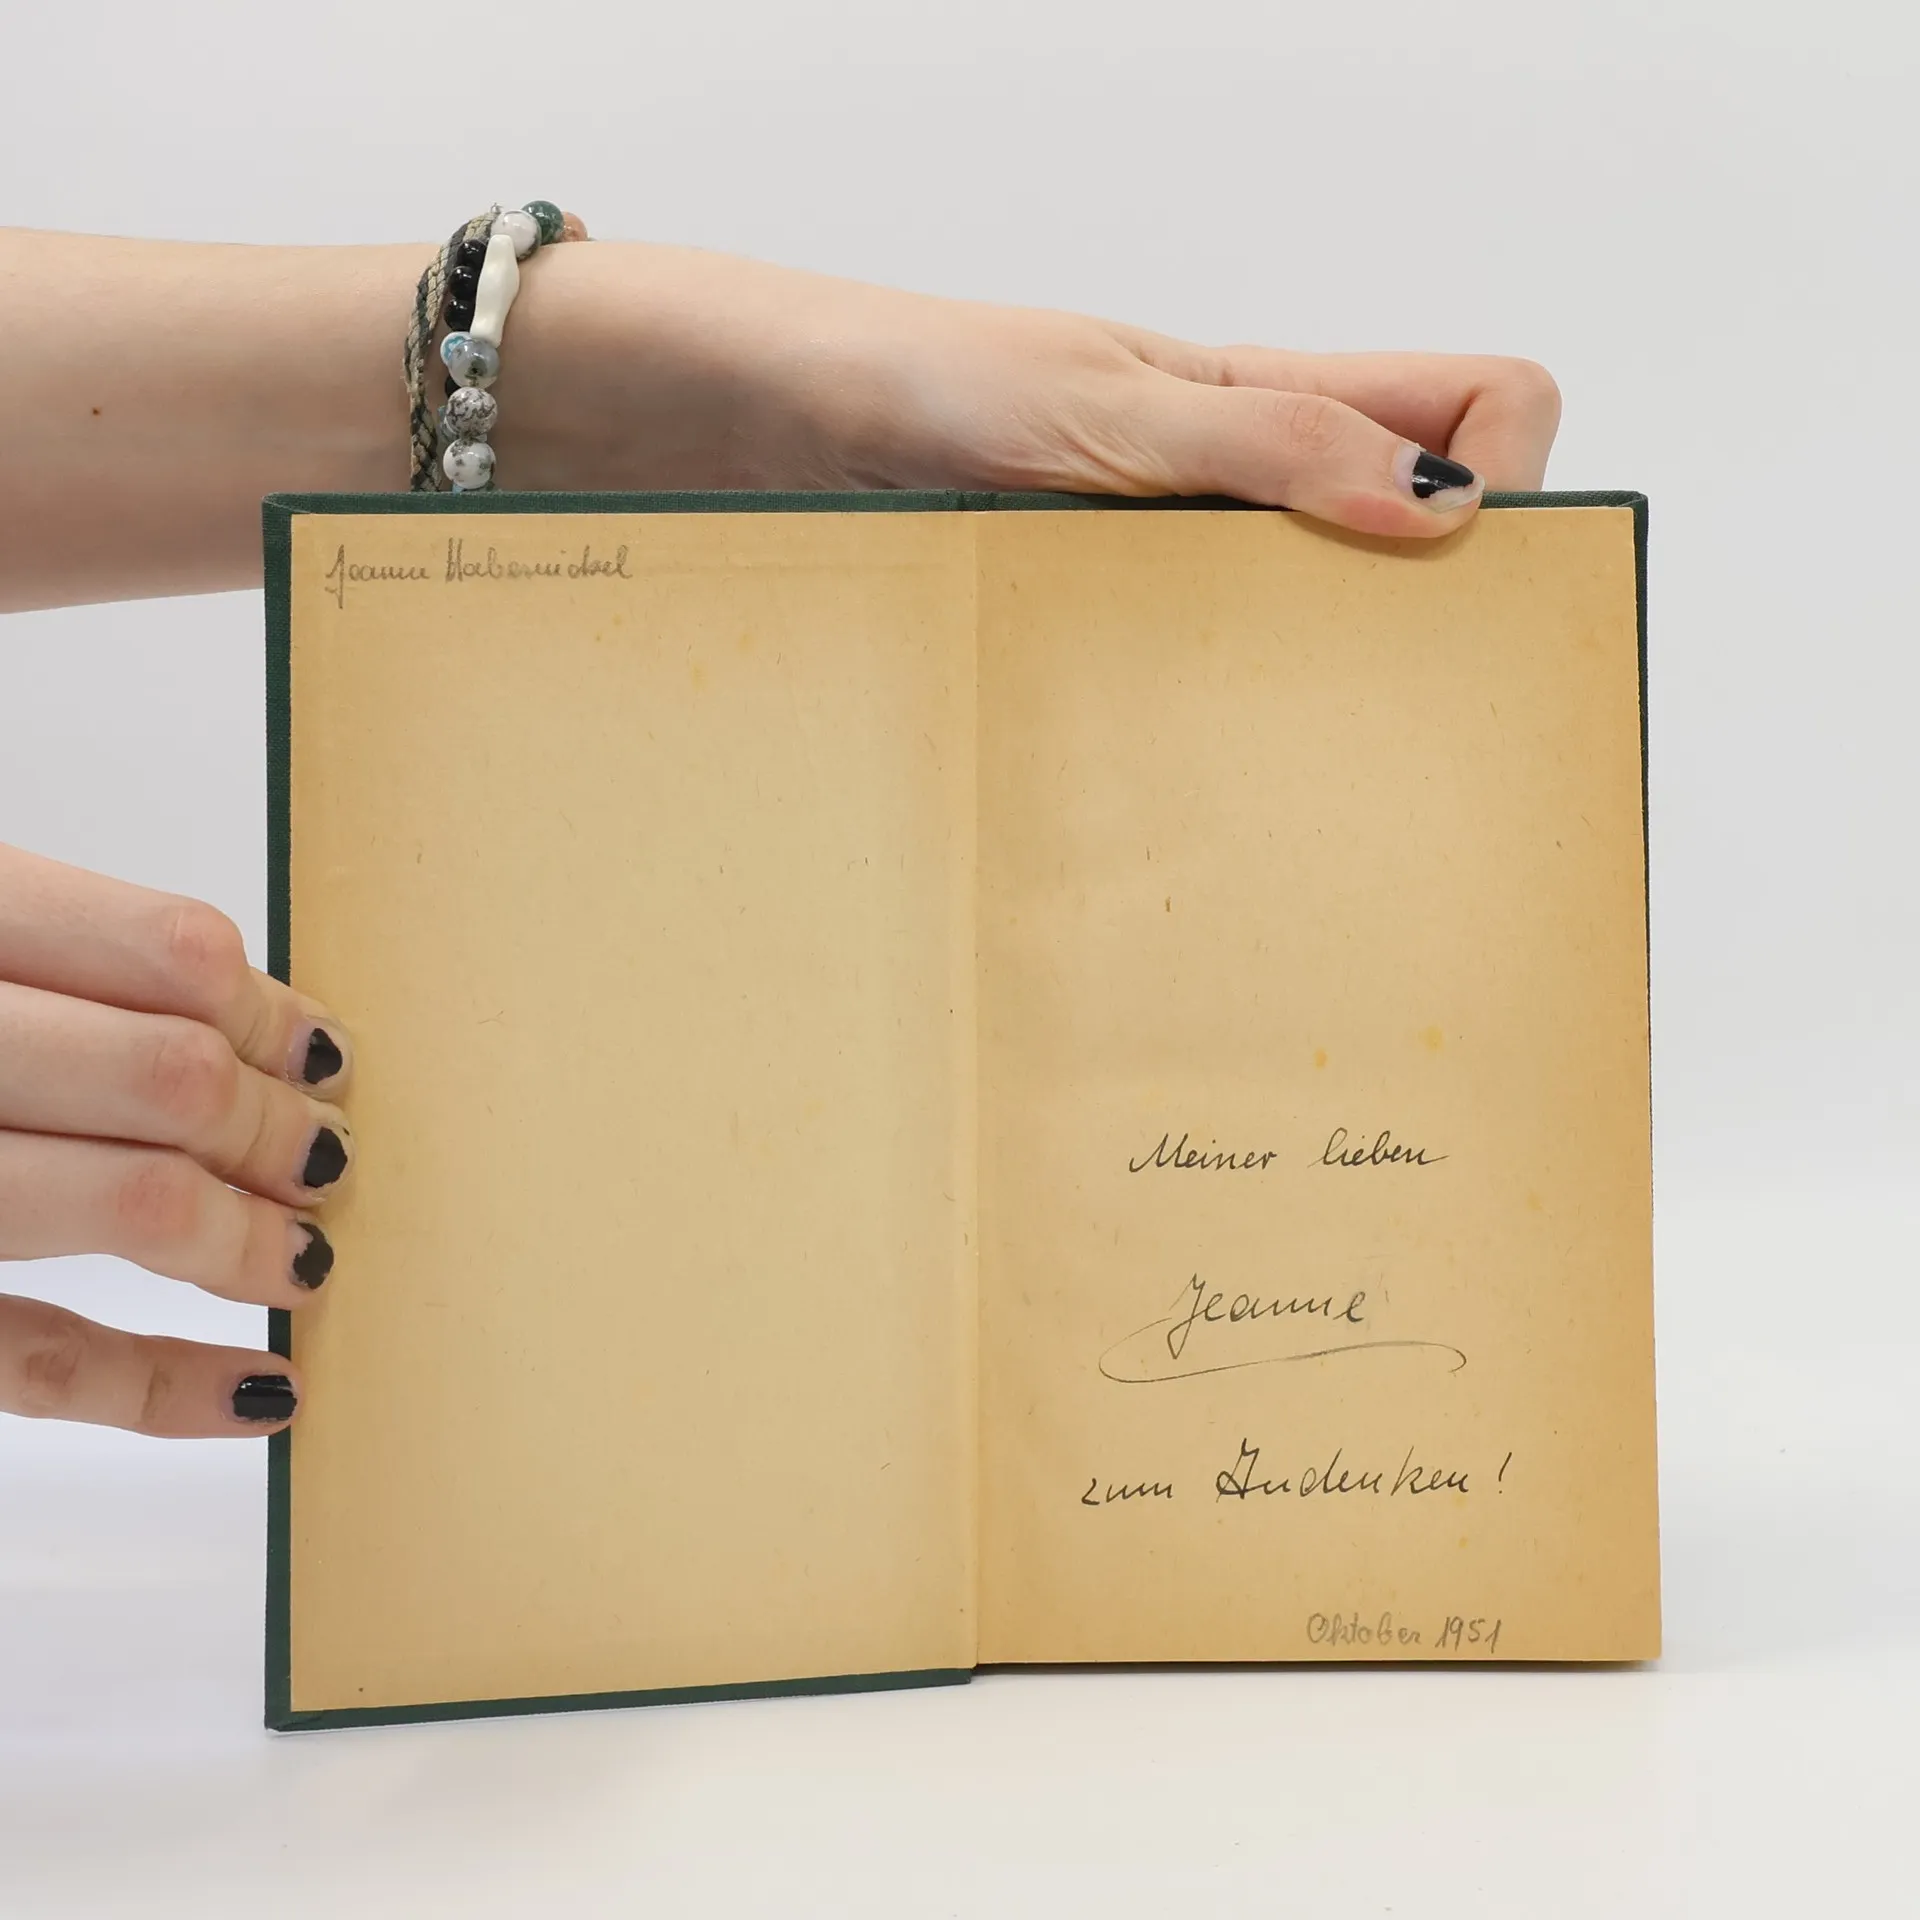 Jeanne Habernickel
Meiner lieben
Jeanne
zum Andenken!
Oktober 1951